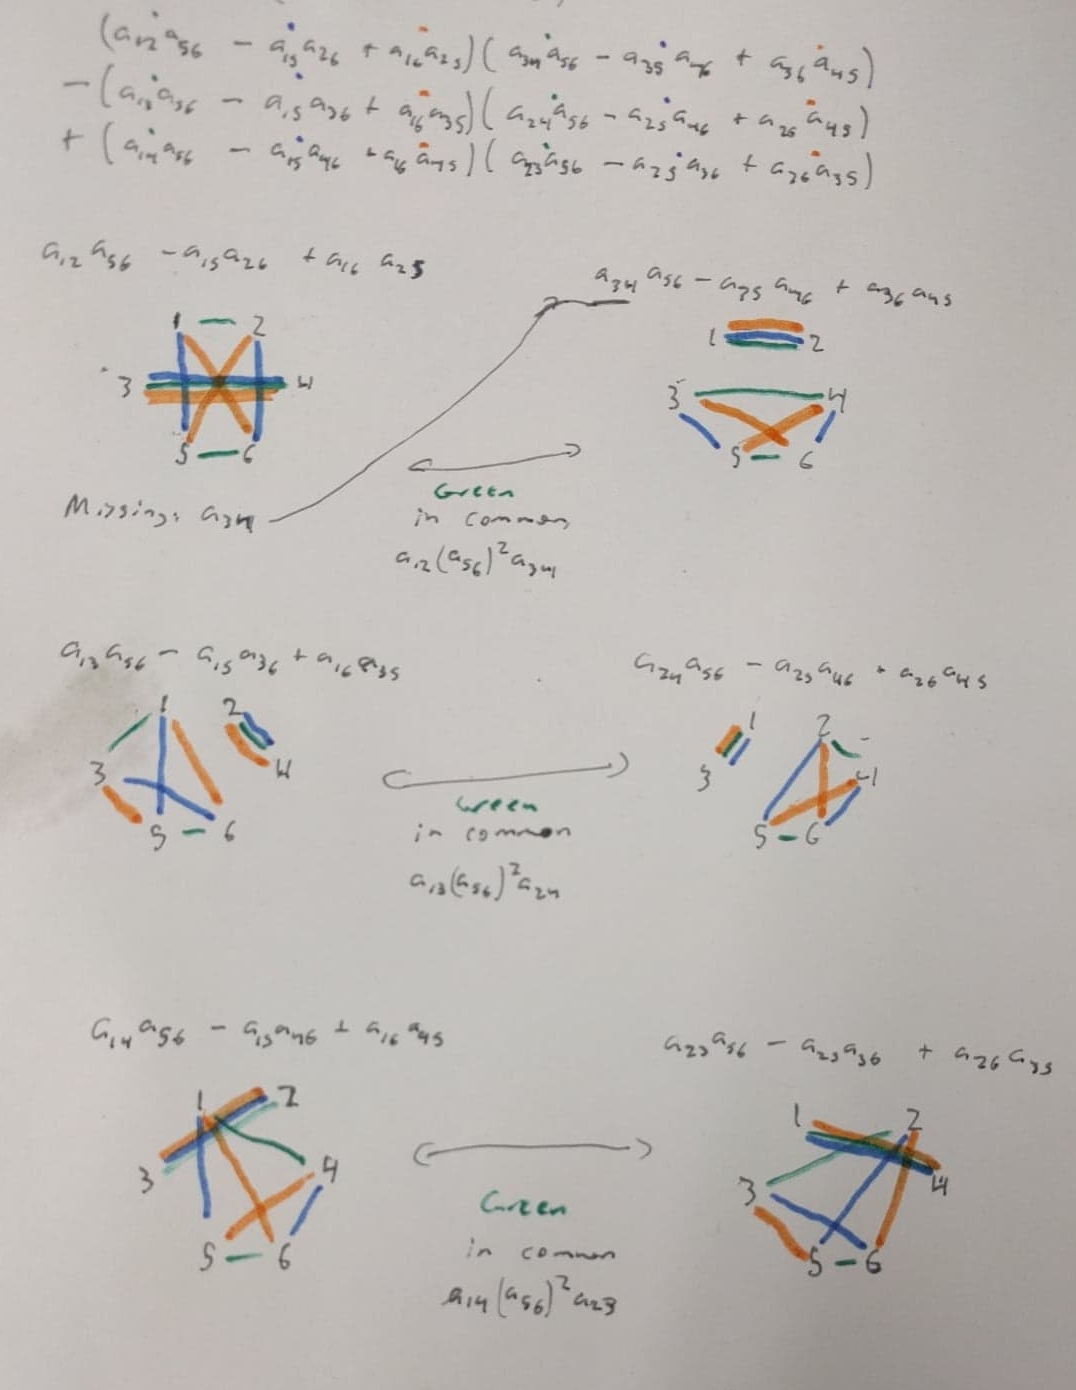 (a₁₂a₅₆ − a₁₅a₂₆ + a₁₆a₂₅)(a₃₄a₅₆ − a₃₅a₄₆ + a₃₆a₄₅)
−(a₁₃a₅₆ − a₁₅a₃₆ + a₁₆a₃₅)(a₂₄a₅₆ − a₂₅a₄₆ + a₂₆a₄₅)
+(a₁₄a₅₆ − a₁₅a₄₆ + a₁₆a₄₅)(a₂₃a₅₆ − a₂₅a₃₆ + a₂₆a₃₅)
a₁₂a₅₆ − a₁₅a₂₆ + a₁₆ a₂₅
a₃₄ a₅₆ − a₃₅ a₄₆ + a₃₆a₄₅
1 2
3 4
5 6
1 2
3 4
5 6
Missing: a₃₄
Green
in common
a₁₂(a₅₆)²a₃₄
a₁₃a₅₆ − a₁₅a₃₆ + a₁₆a₃₅
a₂₄a₅₆ − a₂₅a₄₆ + a₂₆a₄₅
1 2
3 4
5 6
1 2
3 4
5 6
Green
in common
a₁₃(a₅₆)²a₂₄
a₁₄a₅₆ − a₁₅a₄₆ + a₁₆a₄₅
a₂₃a₅₆ − a₂₅a₃₆ + a₂₆a₃₅
1 2
3 4
5 6
1 2
3 4
5 6
Green
in common
a₁₄(a₅₆)²a₂₃